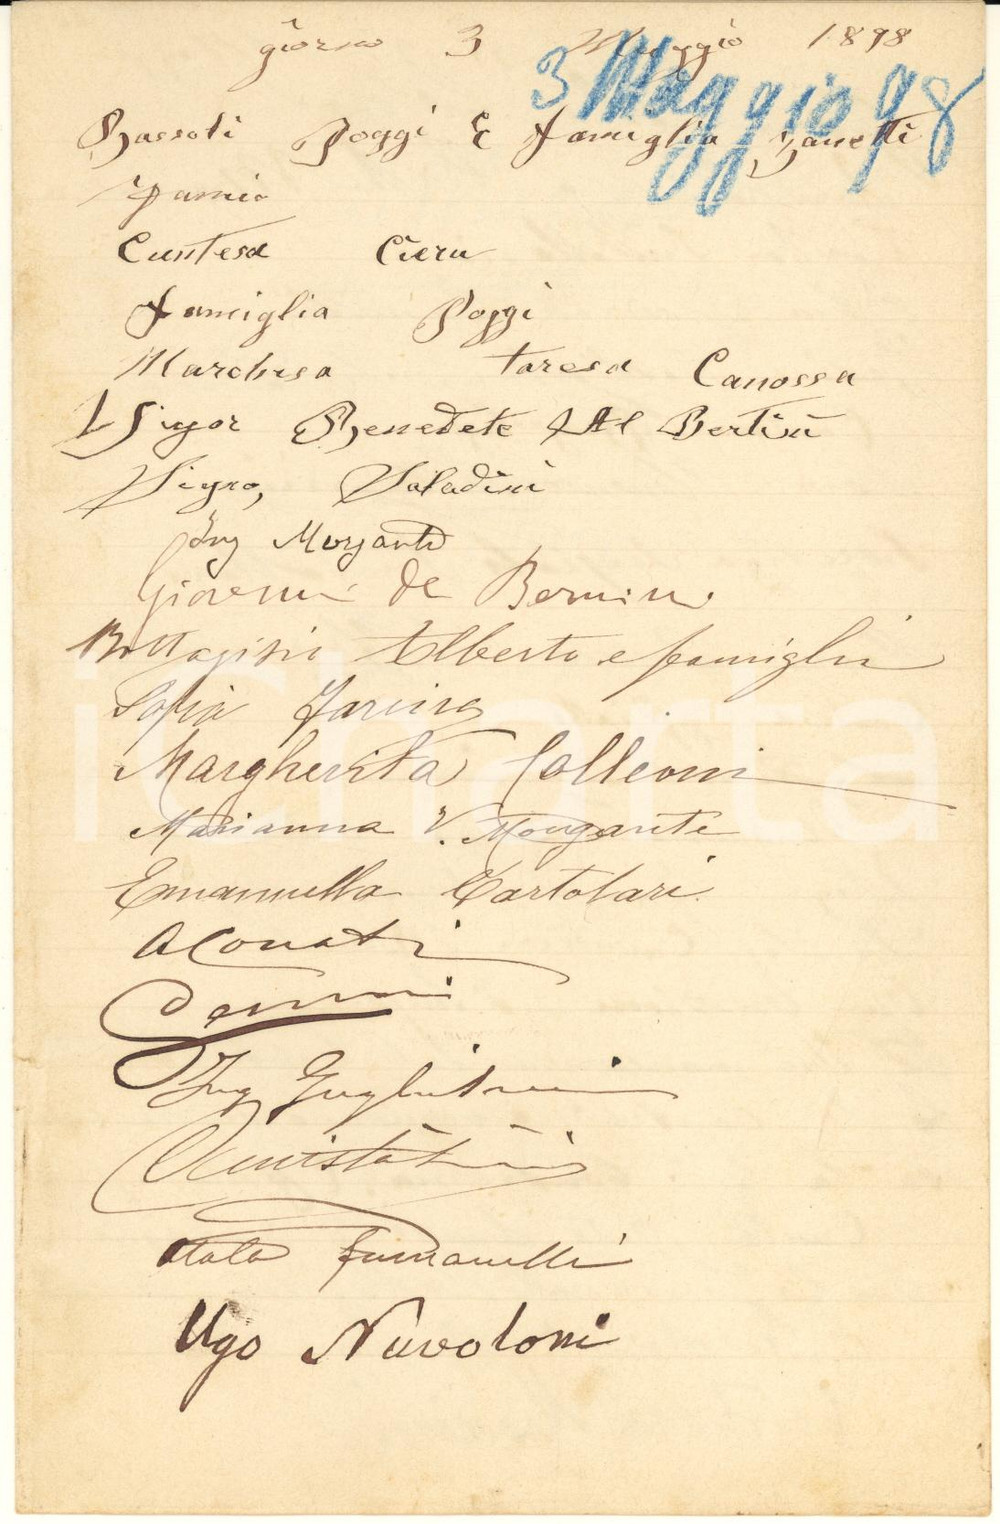 giorno 3 Maggio 1898
3 Maggio 98
Bassoti Poggi E Famiglia Zanetti
Contesa Ciera
Famiglia Poggi
Marchesa Taresa Canossa
Sigor Benedete Al Bertini
Signo, Saladini
Ing Morgante
Giovanni de Bernini
Bottagisio Alberto e famiglia
Sofia
Margherita Colleoni
Marianna V. Morgante
Emannuella Cartolari
A Conati
Ing Guglielmi
Italo Fumanelli
Ugo Nuvoloni
iCharta